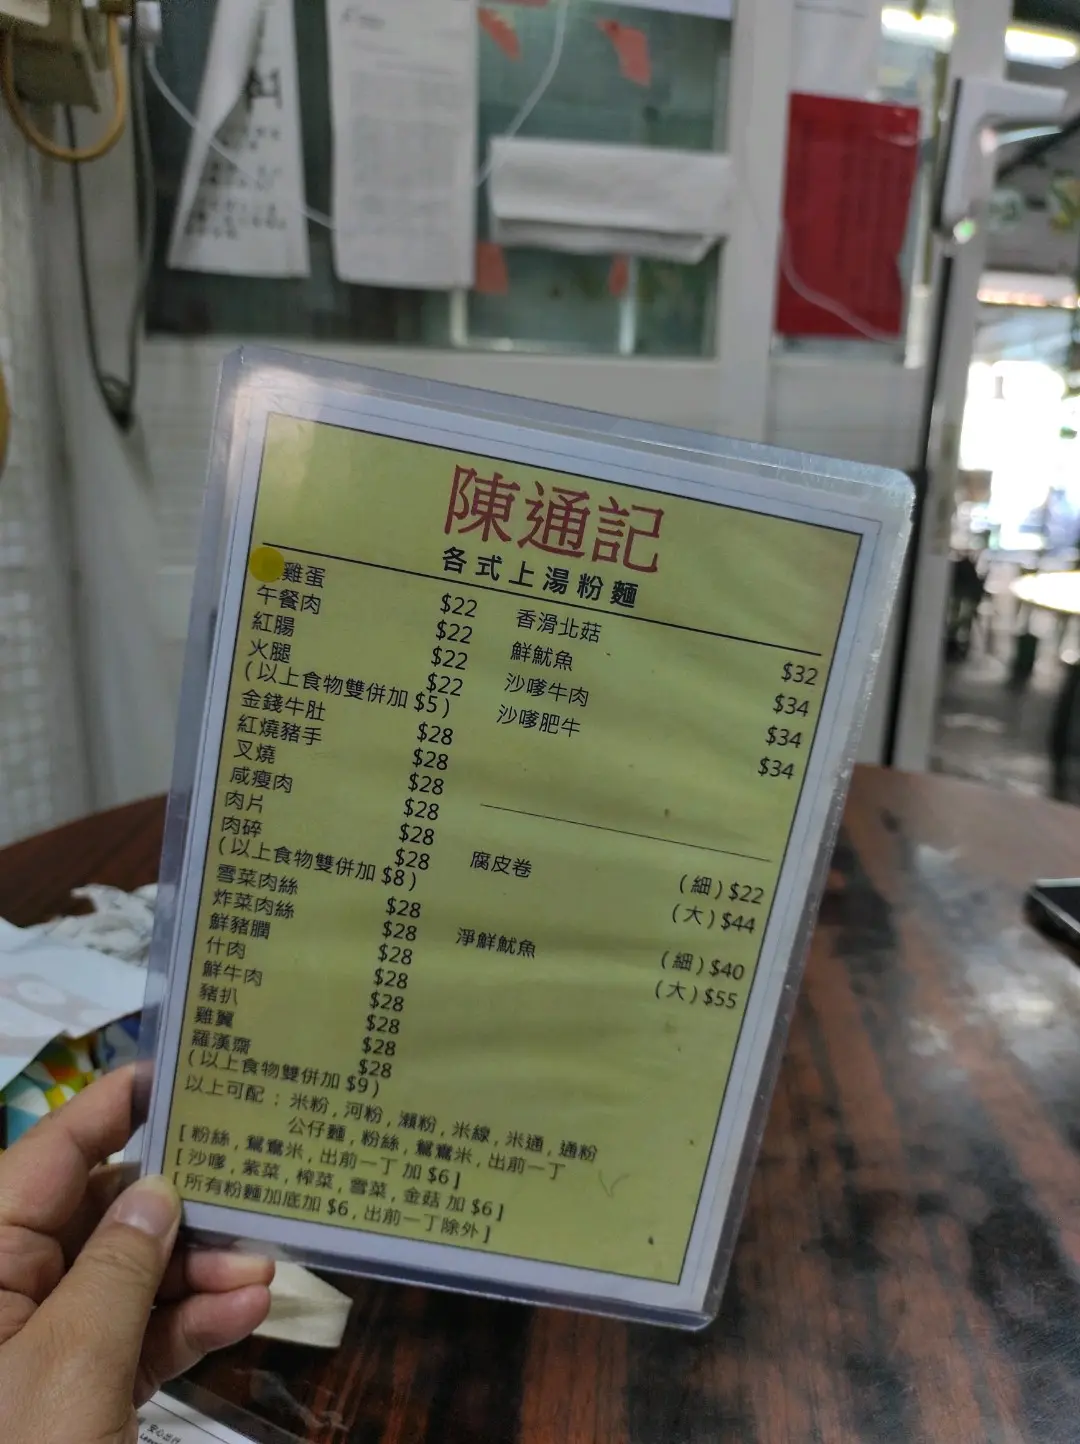 陳通記
各式上湯粉麵
雞蛋 $22
午餐肉 $22
紅腸 $22
火腿 $22
(以上食物雙併加 $5)
金錢牛肚 $28
紅燒豬手 $28
叉燒 $28
咸瘦肉 $28
肉片 $28
肉碎 $28
(以上食物雙併加 $8)
雪菜肉絲 $28
炸菜肉絲 $28
鮮豬膶 $28
什肉 $28
鮮牛肉 $28
豬扒 $28
雞翼 $28
羅漢齋 $28
(以上食物雙併加 $9)
香滑北菇 $32
鮮魷魚 $34
沙嗲牛肉 $34
沙嗲肥牛 $34
腐皮卷 (細) $22
(大) $44
淨鮮魷魚 (細) $40
(大) $55
以上可配 : 米粉 , 河粉 , 瀨粉 , 米線 , 米通 , 通粉
公仔麵 , 粉絲 , 鴛鴦米 , 出前一丁
[ 粉絲 , 鴛鴦米 , 出前一丁 加 $6 ]
[ 沙嗲 , 紫菜 , 榨菜 , 雪菜 , 金菇 加 $6 ]
[ 所有粉麵加底加 $6 , 出前一丁除外 ]